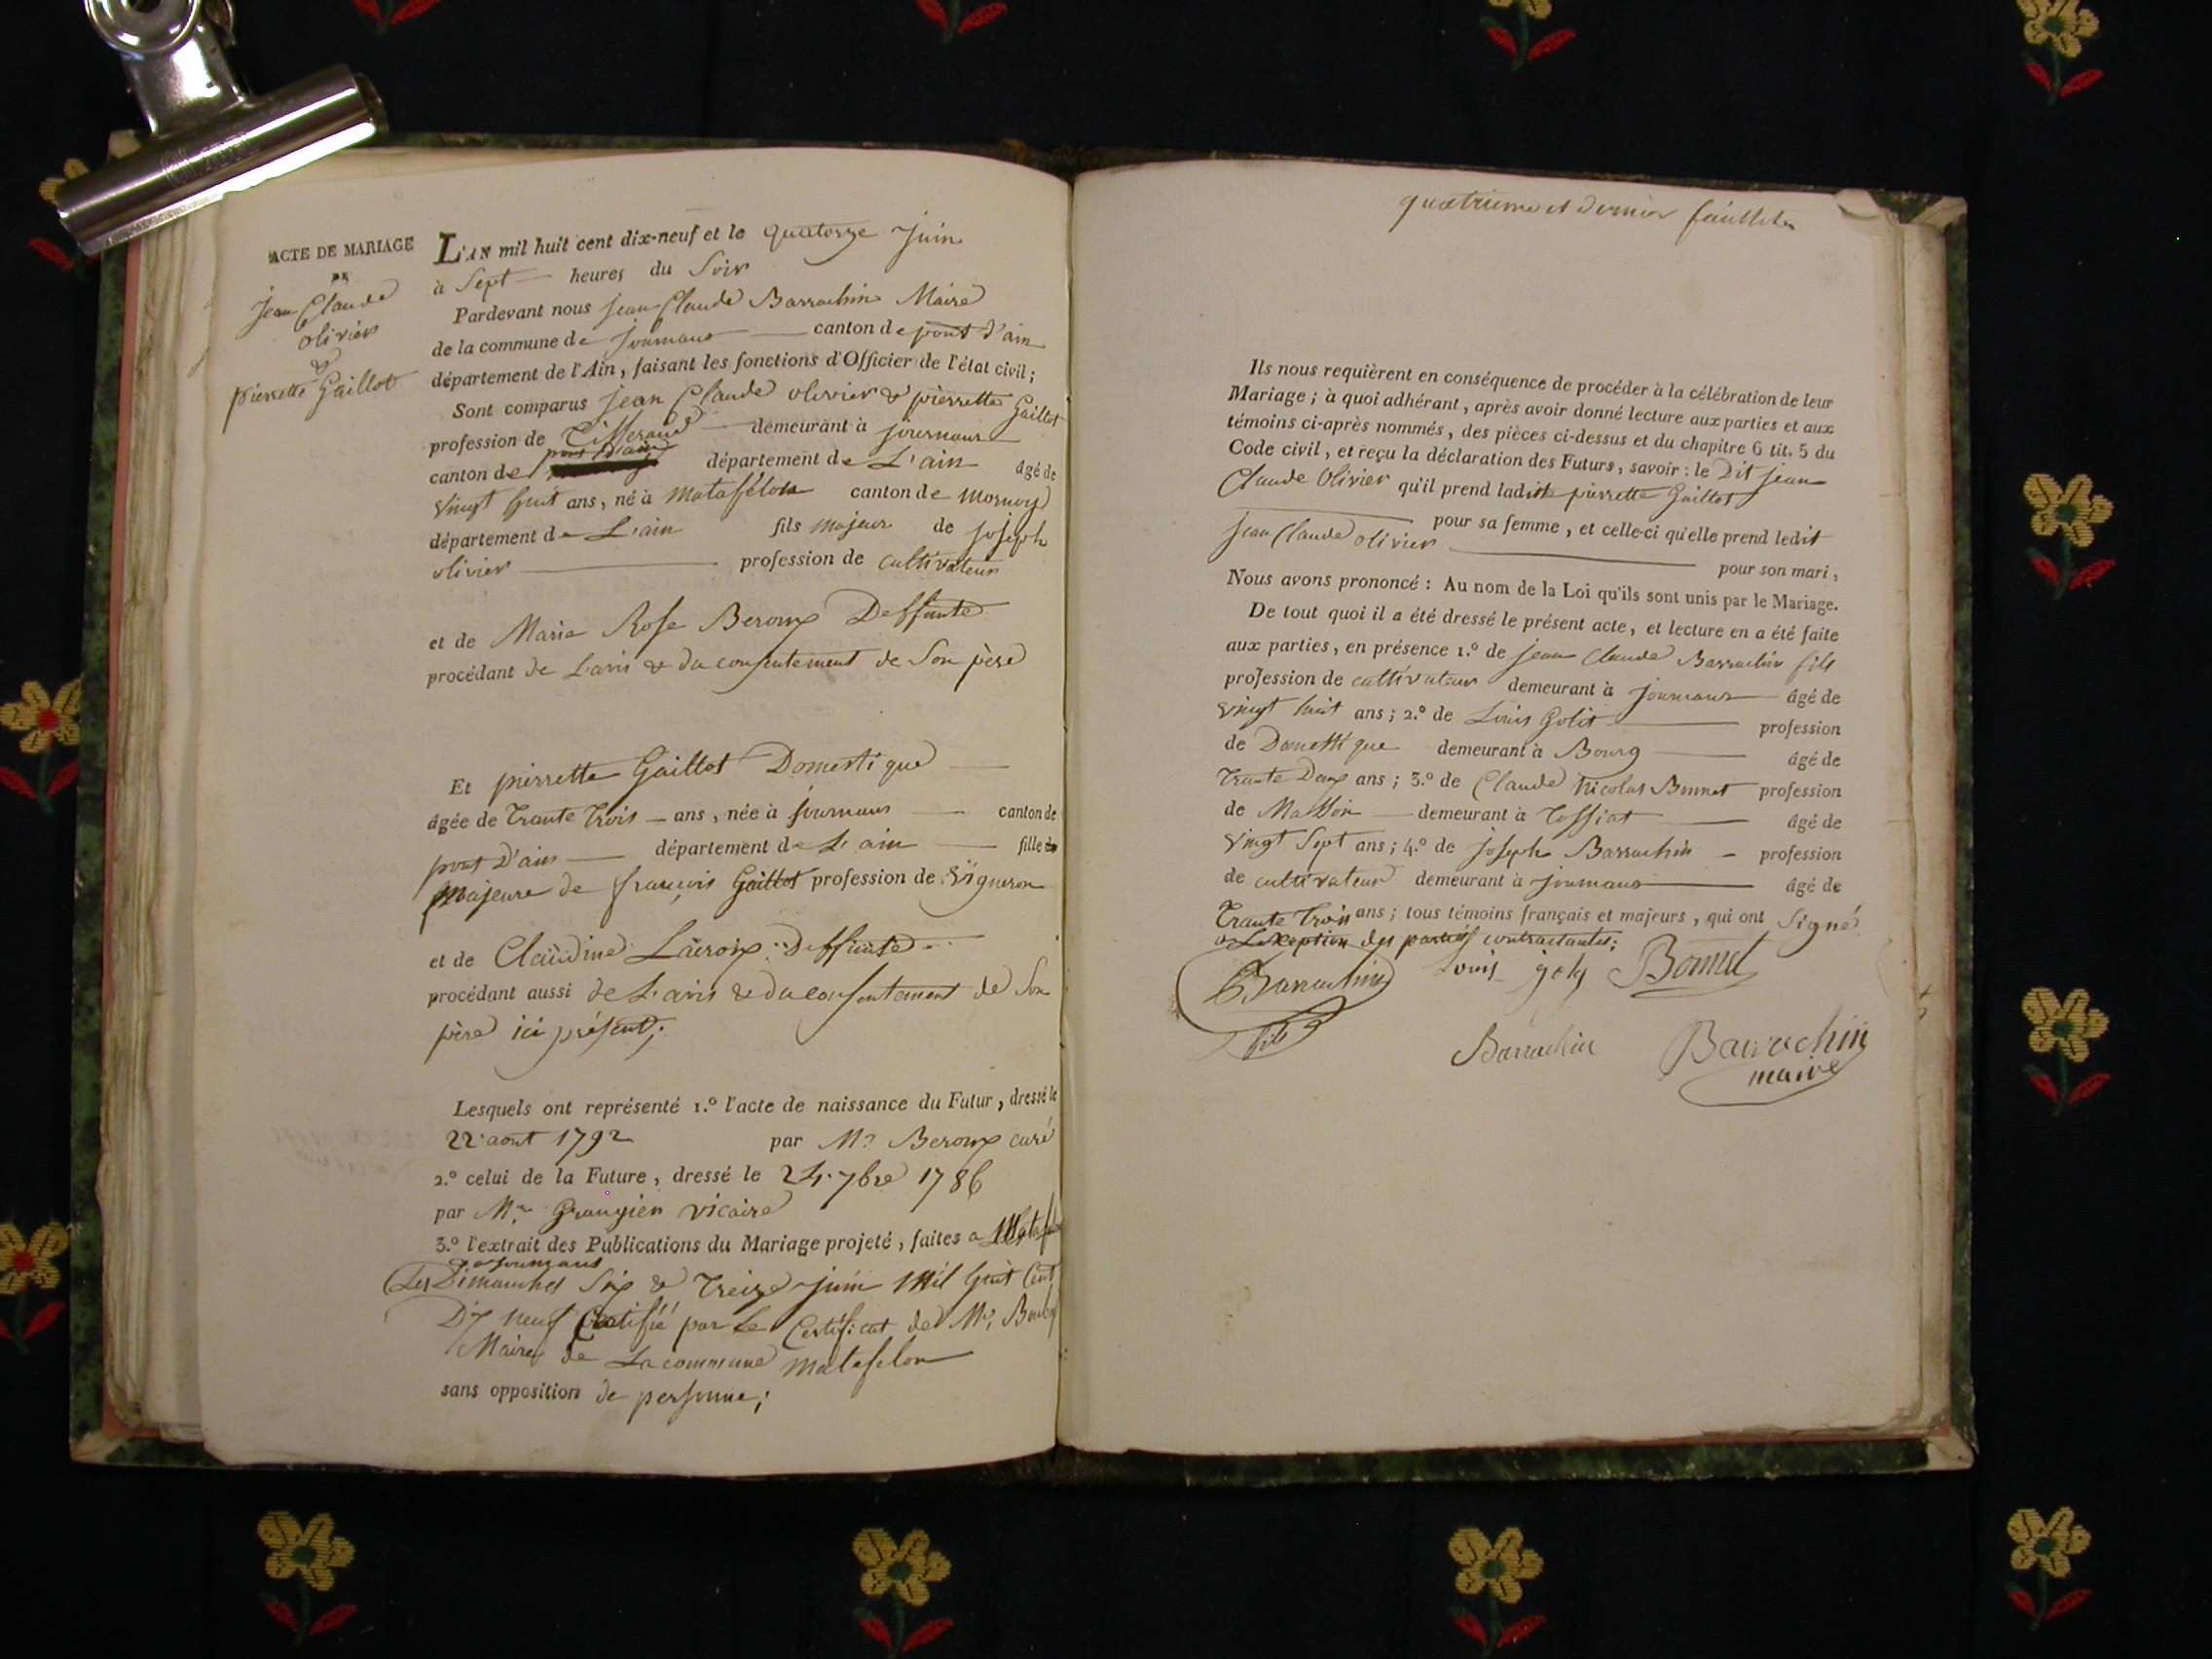 ACTE DE MARIAGE
DE
jean Claude
olivier
&
pierrette Gaillot
L'AN mil huit cent dix-neuf et le quatorze juin
à Sept heures du Soir
Pardevant nous jean Claude Barrachin Maire
de la commune de journans canton de pont d'ain
département de l'Ain, faisant les fonctions d'Officier de l'état civil;
Sont comparus jean Claude olivier & pierrette Gaillot
profession de Tisserand demeurant à journans
pont d'ain
canton de département de L'ain âgé de
vingt huit ans, né à Matafélon canton de Mornay
département de L'ain fils majeur de joseph
olivier profession de cultivateur
et de Marie Rose Beroux Deffunte
procédant de L'avis & du consentement de Son père
Et pierrette Gaillot Domestique
âgée de Trante Trois ans, née à journans canton de
pont D'ain département de L'ain fille
Majeure de françois Gaillot profession de vigneron
et de Claudine Lacroix Deffunte
procédant aussi de L'avis & du consentement de Son
père ici présent;
Lesquels ont représenté 1.º l'acte de naissance du Futur, dressé le
22 aout 1792 par Mr Beroux curé
2.º celui de la Future, dressé le 24. 7bre 1786
par Mr. vicaire
3.º l'extrait des Publications du Mariage projeté, faites a
& journans
Les Dimanches Six & Treize juin Mil huit Cent
Dix neuf Certifié par Le Certificat de Mr.
Maire de La commune matafelon
sans opposition de personne;
quatrieme et dernier feuillet
Ils nous requièrent en conséquence de procéder à la célébration de leur
Mariage; à quoi adhérant, après avoir donné lecture aux parties et aux
témoins ci-après nommés, des pièces ci-dessus et du chapitre 6 tit. 5 du
Code civil, et reçu la déclaration des Futurs, savoir: le Dit jean
Claude Olivier qu'il prend ladite pierrette Gaillot
pour sa femme, et celle-ci qu'elle prend ledit
jean Claude olivier pour son mari,
Nous avons prononcé: Au nom de la Loi qu'ils sont unis par le Mariage.
De tout quoi il a été dressé le présent acte, et lecture en a été faite
aux parties, en présence 1.º de jean Claude Barrachin fils
profession de cultivateur demeurant à journans âgé de
vingt huit ans; 2.º de Louis Golit profession
de Domestique demeurant à Bourg âgé de
Trante Deux ans; 3.º de Claude Nicolas Bonnet profession
de Masson demeurant à Tossiat âgé de
vingt Sept ans; 4.º de joseph Barrachin profession
de cultivateur demeurant à journans âgé de
Trante Trois ans; tous témoins français et majeurs, qui ont Signé
a L'exception des parties contractantes;
Barrachin Louis goly Bonnet
fils
Barrachin Barrachin
maire